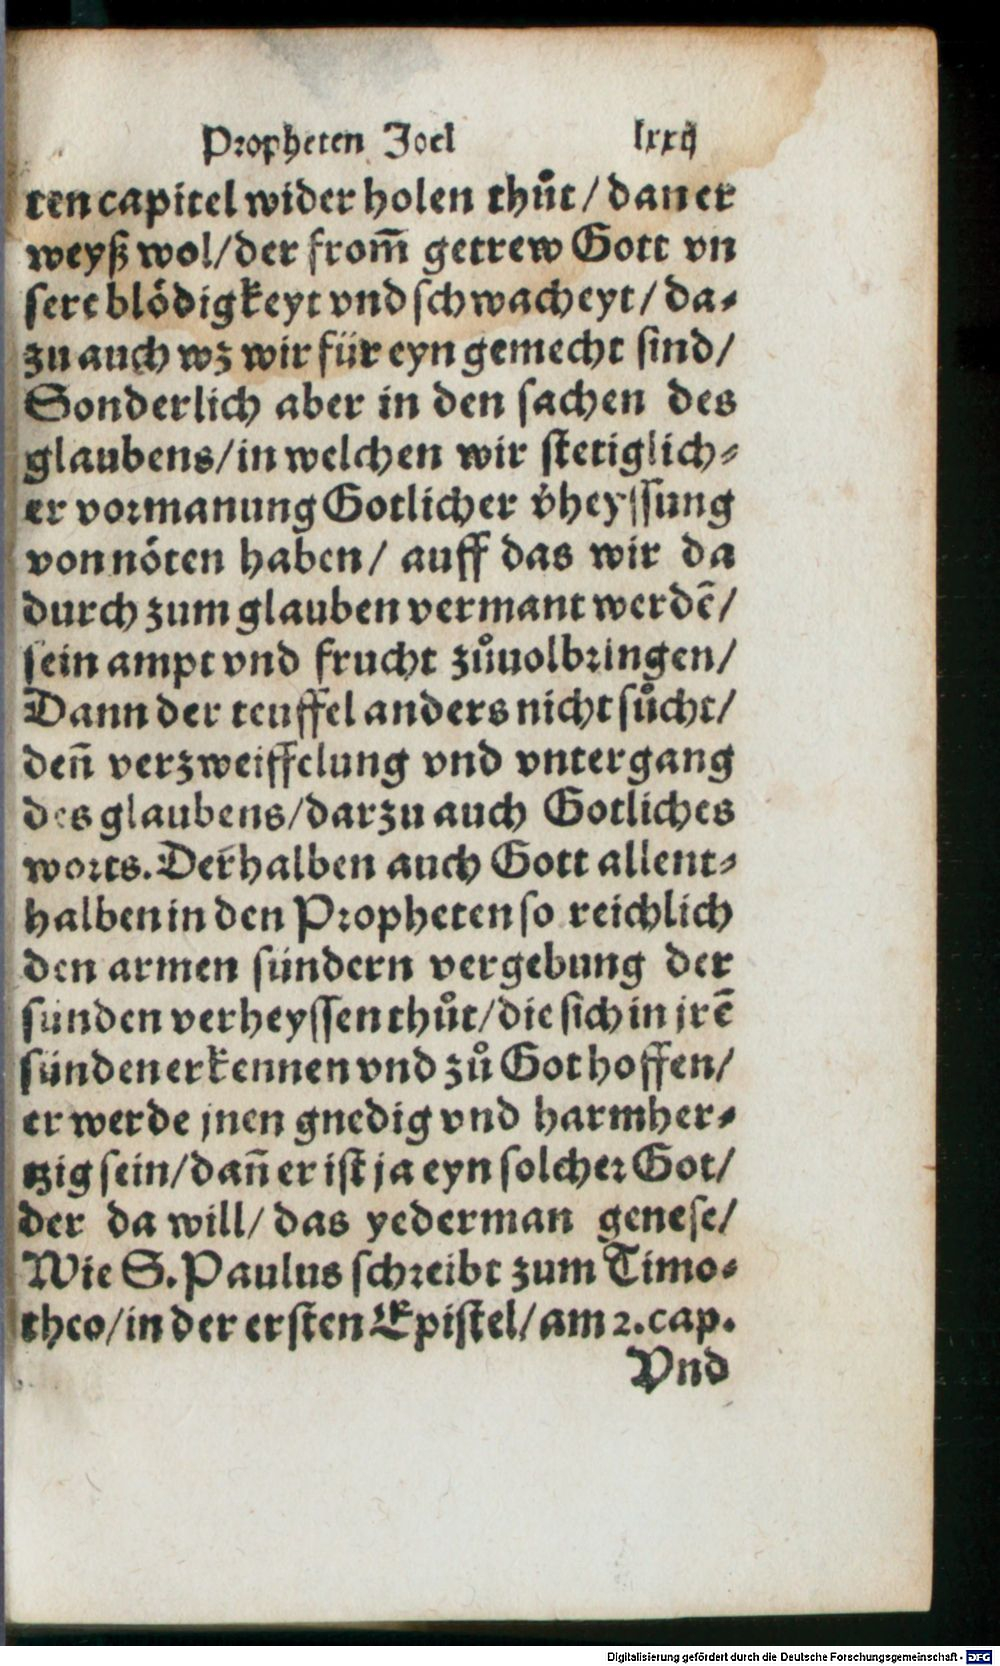 Propheten Joel lxxij
ten capitel wider holen thůt / dan er
weyß wol / der from̅ getrew Gott vn
sere blödigkeyt vnd schwacheyt / da-
zu auch wz wir für eyn gemecht sind /
Sonderlich aber in den sachen des
glaubens / in welchen wir stetiglich-
er vormanung Gotlicher v̓heyssung
von nöten haben / auff das wir da
durch zum glauben vermant werdē /
sein ampt vnd frucht zůuolbringen /
Dann der teuffel anders nicht sůcht /
den̅ verzweiffelung vnd vntergang
des glaubens / darzu auch Gotliches
worts. Derhalben auch Gott allent-
halben in den Propheten so reichlich
den armen sündern vergebung der
sünden verheyssen thůt / die sich in jrē
sünden erkennen vnd zů Got hoffen /
er werde jnen gnedig vnd harmher-
tzig sein / dan̅ er ist ja eyn solcher Got /
der da will / das yederman genese /
Wie S. Paulus schreibt zum Timo-
theo / in der ersten Epistel / am 2. cap.
Vnd
Digitalisierung gefördert durch die Deutsche Forschungsgemeinschaft - DFG